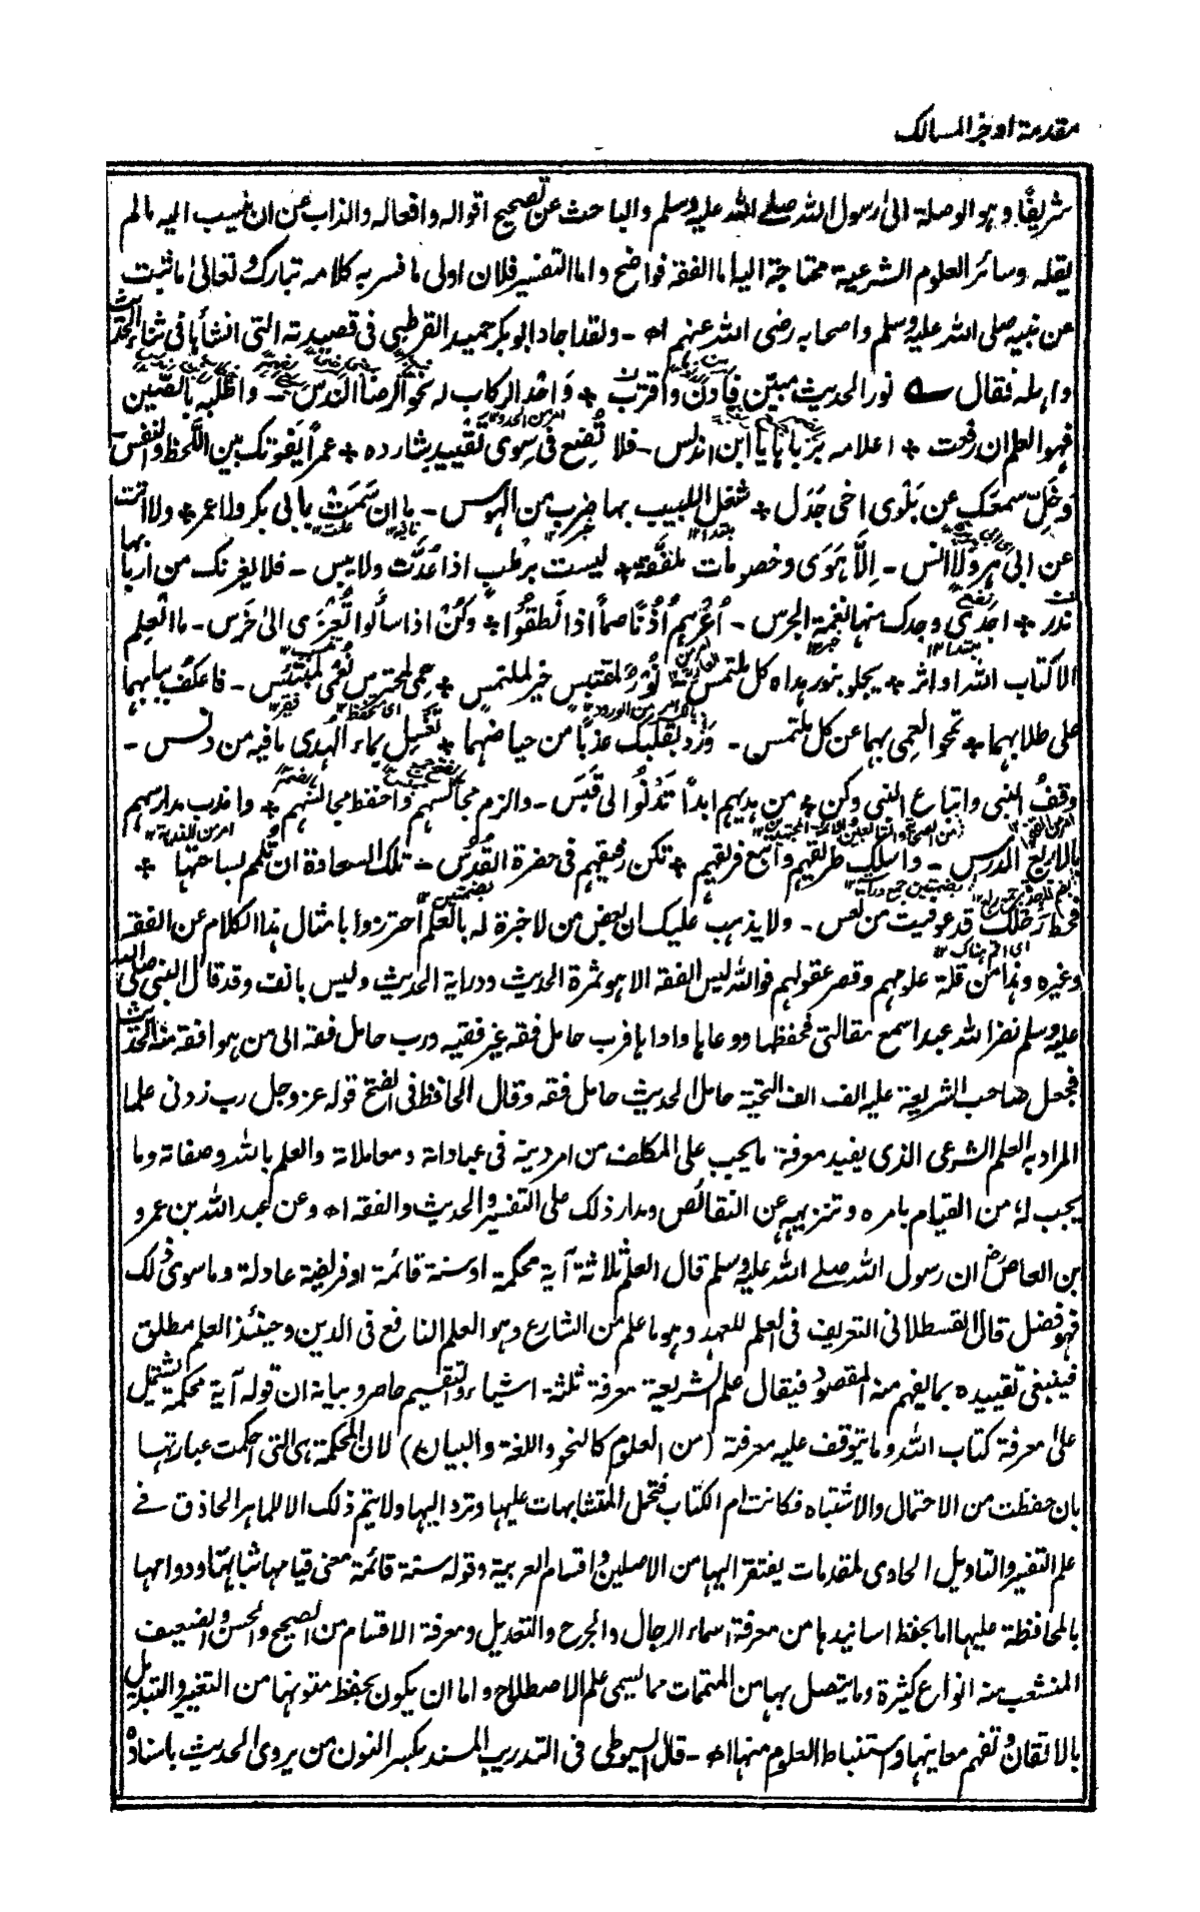 مقدمة اوجز المسالك
شريفا وہو الوصلة الى رسول اللہ صلے اللہ عليہ وسلم والباحث عن تصحيح اقوالہ وافعالہ والذاب عن ان ينسب اليہ مالم
يقلہ وسائر العلوم الشرعية محتاجة اليہ اما الفقہ فواضح واما التفسير فلان اولى ما فسر بہ كلامہ تبارك وتعالىٰ ما ثبت
عن نبيہ صلى اللہ عليہ وسلم واصحابہ رضى اللہ عنہم اھ - ولقد اجاد ابو بكر حميد القرطبى فى قصيدتہ التى انشأہا فى ثناء الحديث
واہلہ فقال ؎ نور الحديث مبين فادن واقترب + واحد الركاب لہ نحو الرضا الندس - واطلبہ بالصين
فہو العلم ان رفعت + اعلامہ برباہا يا ابن اندلس - فلا تُضِع فى سِوى تقييد شاردہ + عمراً يفوتك بين اللَّحظ والنفس
وَخَلِّ سمعك عن بَلْوى اخى جَدَل + شغل اللبيب بها ضرب من الہوس - ما ان سَمَتْ بابى بكر ولا عمر + ولا اتت
عن ابى ہر ولا انس - اِلّا ہَوَى وخصومات ملفقة + ليست برطب اذا عُدَّت ولا يبس - فلا يغرنك من اربابہا
ہذر + اجدى وجدك منہا نغمة الجرس - اُعْرِہمُ اُذُنًا صماً اذا نَطَقُوا + وكُنْ اذا سألوا تُعْزَى الىٰ خَرَس - ما العِلم
الا كتاب اللہ او اثر + يجلو بنور ہداہ كل ملتمس نُوْرٌ لمقتبس خير لملتمس + حِمى لمحترس نُعْمى لمبتئس - فاعكف ببابہما
على طلابہما + تمحو العمى بہما عن كل ملتمس - وَرِد بقلبك عذباً من حياضہما + تغسل بماء الہُدى ما فيہ من دنس -
وقفُ النبى واتباع النبى وكن + من ہديہم ابداً تَدْنُوا لى قَبَس - والزم مجالسہم واحفظ مجالسہم + واندب مدارسہم
بالاربع الدرس - واسلك طريقہم واتبع فريقہم + تكن رفيقہم فى حضرة القُدُس - تلك السعادة ان تُلمم بساحتہا +
فحط رَحلك قد عوفيت من تعس - ولا يذہب عليك ان بعض من لا خبرة لہ بالعلم احترزوا بامثال ہذا الكلام عن الفقہ
وغيرہ وہذا من قلة علومہم وقصر عقولہم فواللہ ليس الفقہ الا ہو ثمرة الحديث ودراية الحديث وليس بانت وقد قال النبى صلى اللہ
عليہ وسلم نضر اللہ عبدا سمع مقالتى فحفظہا ووعاہا واداہا فرب حامل فقہ غير فقيہ ورب حامل فقہ الى من ہو افقہ منہ الحديث
فجعل صاحب الشريعة عليہ الف الف التحية حامل الحديث حامل فقہ وقال الحافظ فى الفتح قولہ عز وجل رب زدنى علما
المراد بہ العلم الشرعى الذى يفيد معرفة ما يجب على المكلف من امر دينہ فى عباداتہ ومعاملاتہ والعلم باللہ وصفاتہ وما
يجب لہ من القيام بامرہ وتنزيہہ عن النقائص ومدار ذلك على التفسير والحديث والفقہ اھ وعن عبد اللہ بن عمرو
بن العاص رض ان رسول اللہ صلے اللہ عليہ وسلم قال العلم ثلاثة آية محكمة او سنة قائمة او فريضة عادلة وما سوى ذلك
فہو فضل قال القسطلانى التعريف فى العلم للعہد وہو ما علم من الشارع وہو العلم النافع فى الدين وحينئذ العلم مطلق
فينبغى تقييدہ بما يفہم منہ المقصود فيقال علم الشريعة معرفة ثلثة اشياء والتقسيم حاصر وبيانہ ان قولہ آية محكمة يشتمل
علىٰ معرفة كتاب اللہ وما يتوقف عليہ معرفتہ (من العلوم كالنحو واللغة والبيان) لان المحكمة ہى التى احكمت عبارتہا
بان حفظت من الاحتمال والاشتباہ فكانت ام الكتاب فتحمل المتشابہات عليہا وترد اليہا ولا يتم ذلك الا للماہر الحاذق فے
علم التفسير والتاويل الحاوى لمقدمات يفتقر اليہا من الاصلين واقسام العربية وقولہ سنة قائمة معنى قيامہا ثباتہا ودوامہا
بالمحافظة عليہا اما بحفظ اسانيدہا من معرفة اسماء الرجال والجرح والتعديل ومعرفة الاقسام من الصحيح والحسن والضعيف
المنشعب منہ انواع كثيرة وما يتصل بہا من المتممات مما يسمى علم الاصطلاح واما ان يكون بحفظ متونہا من التغيير والتبديل
بالاتقان وتفہم معانيہا واستنباط العلوم منہا اھ - قال السيوطى فى التدريب المسند بكسر النون من يروى الحديث باسنادہ